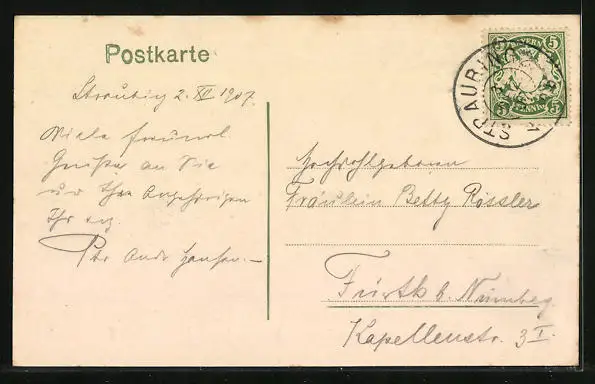 Postkarte
Straubing 2. XII 1907.
Viele freundl.
Grüße an Sie
und Ihre Angehörigen
Ihr erg.
BAYERN
5 5
5 5
STRAUBING
Hochwohlgeboren
Fräulein Betty Rössler
Fürth b. Nürnberg
Kapellenstr. 3 I.